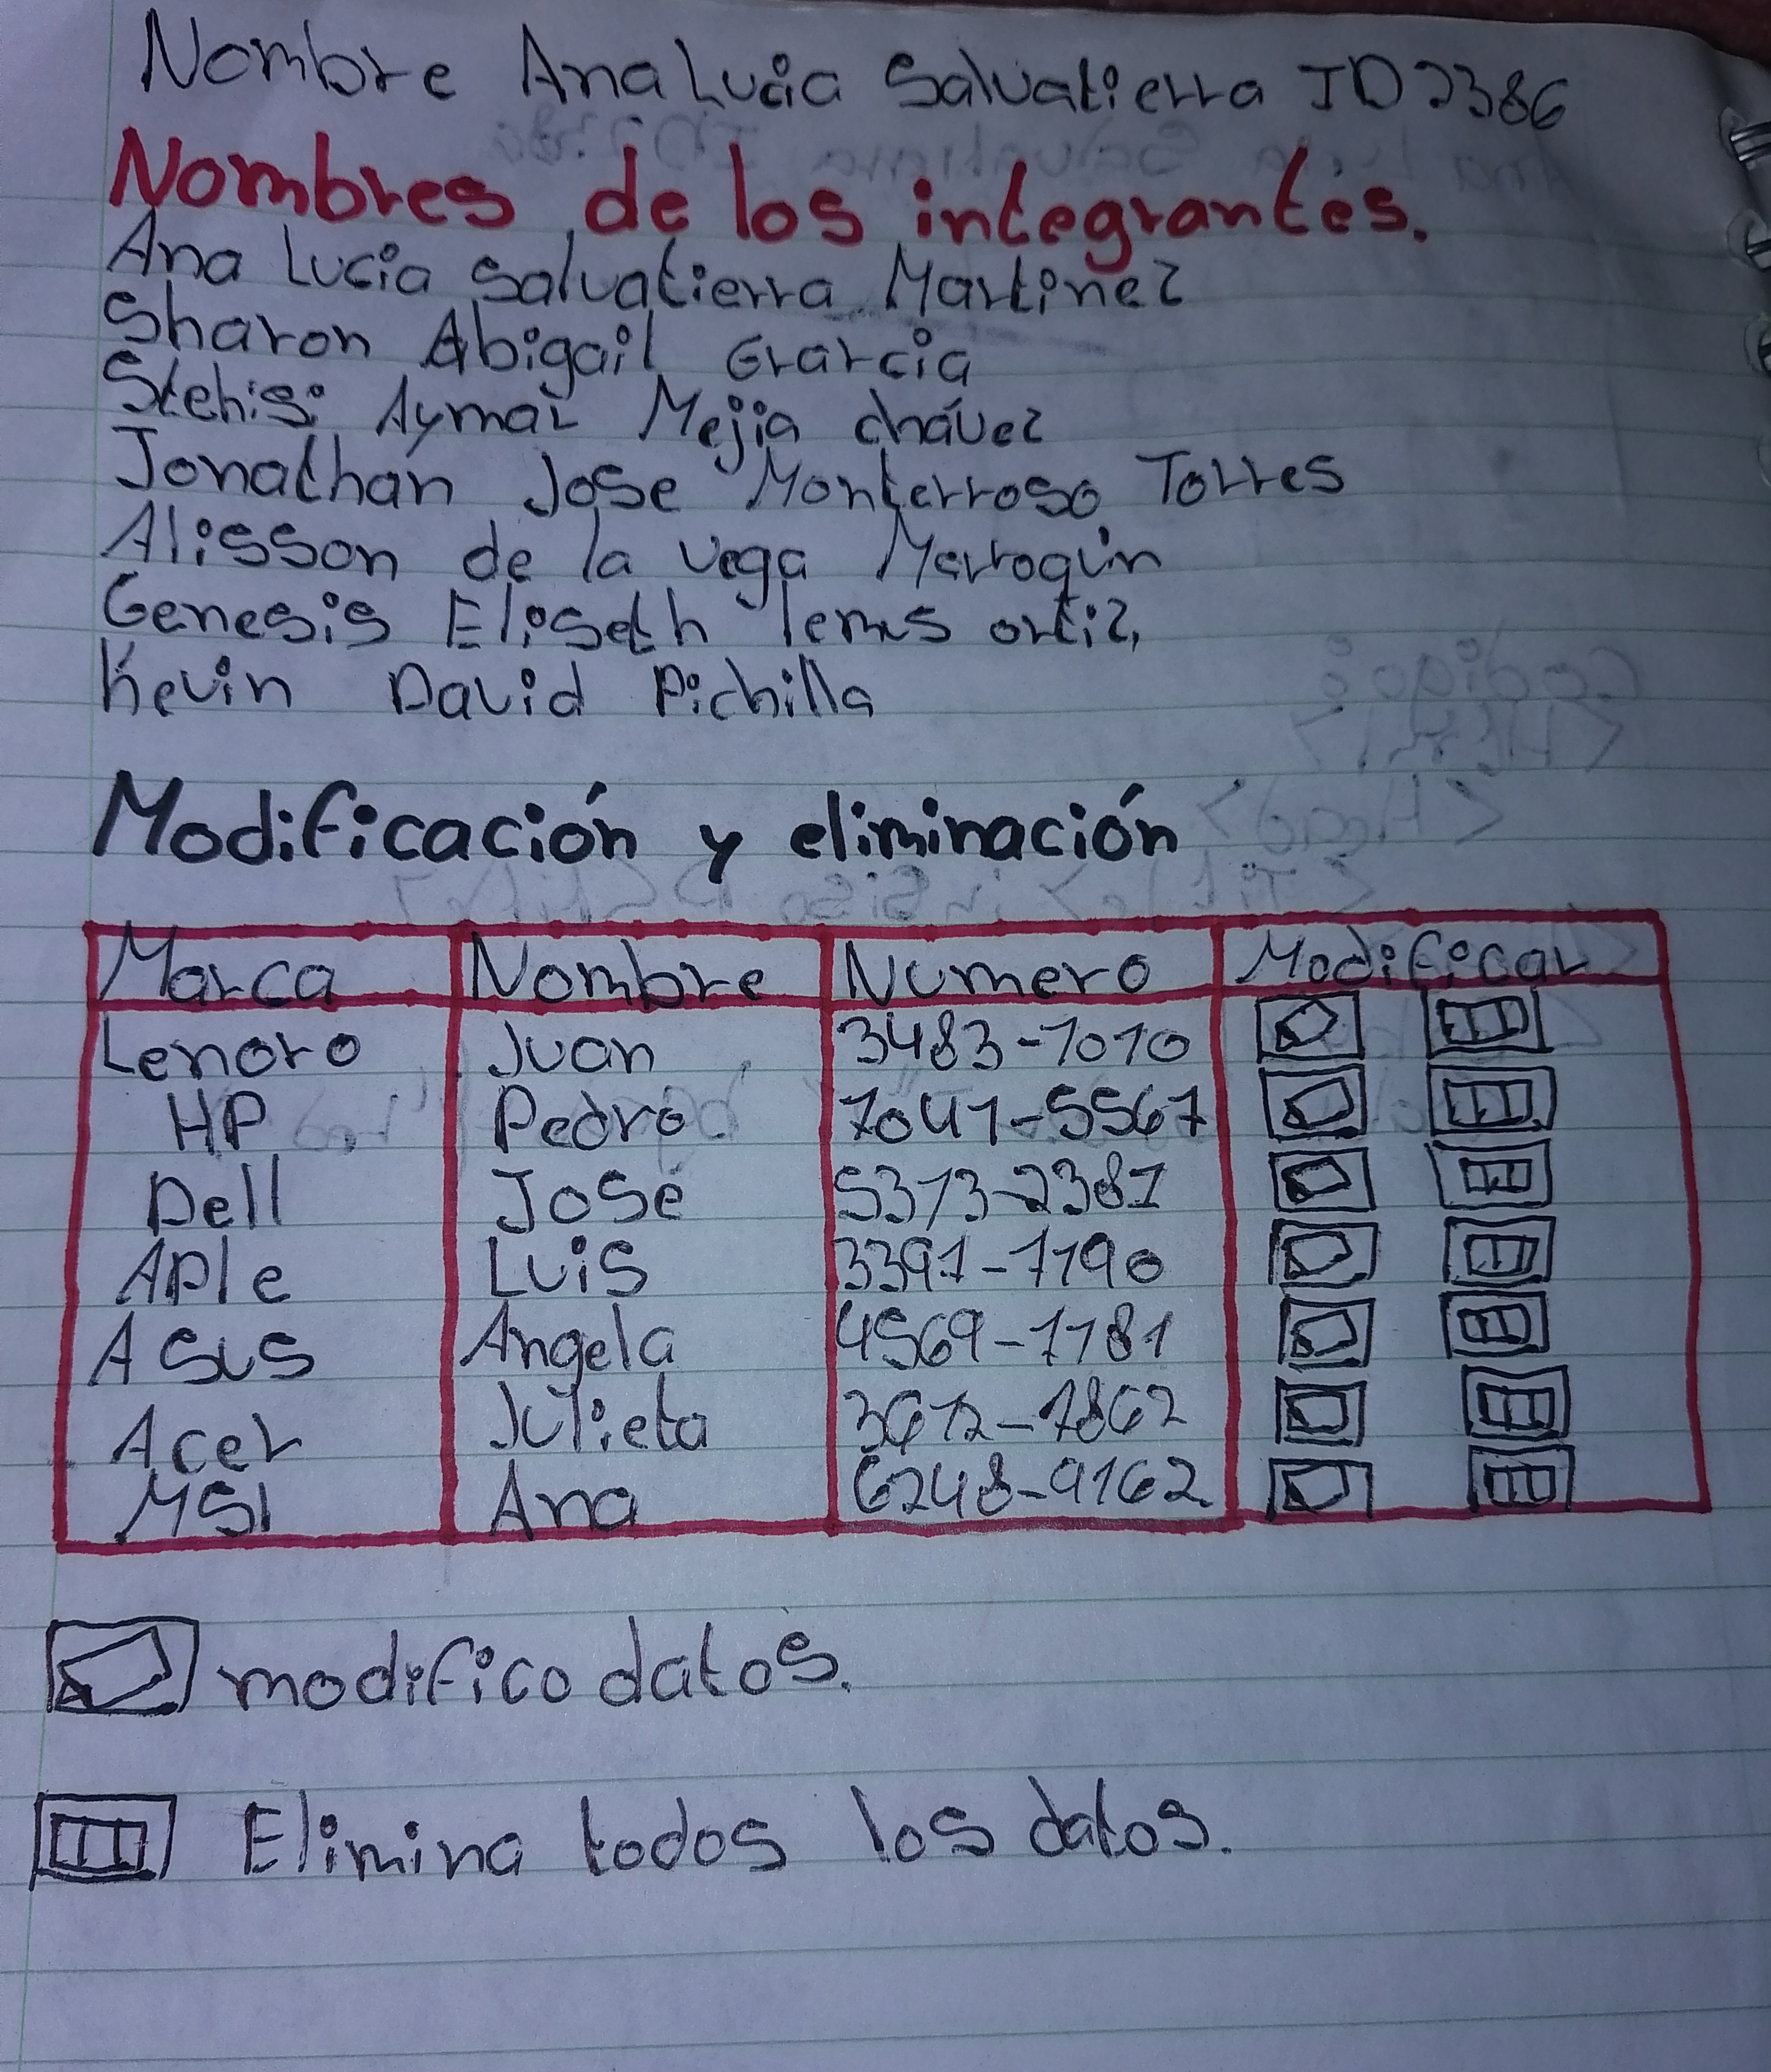 Nombre Ana Lucia Salvatierra ID 2386
Nombres de los integrantes.
Ana Lucia Salvatierra Martinez
Sharon Abigail Grarcia
Aymai Mejia chávez
Jonathan Jose Monterroso Torres
Alisson de la vega Marroquin
Genesis Eliseth Temis ortiz,
Kevin David Pichilla
Modificación y eliminación
Marca Nombre Numero Modificar
Lenoro Juan 3483-1010
HP Pedro 7041-5567
Dell José 5373-2381
APle Luis 3391-1190
ASUS Angela 4569-1181
Acer Julieta
MSI Ana 6248-9162
modifico datos.
Elimina todos los datos.